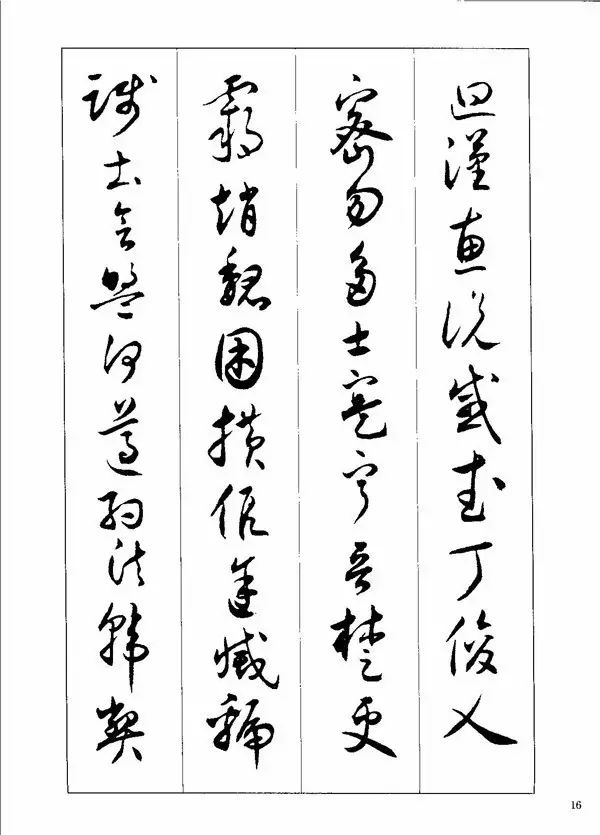 迴漢惠說感武丁俊乂
密勿多士寔寧晉楚更
霸趙魏困橫假途滅虢
踐土會盟何遵約法韓弊
16